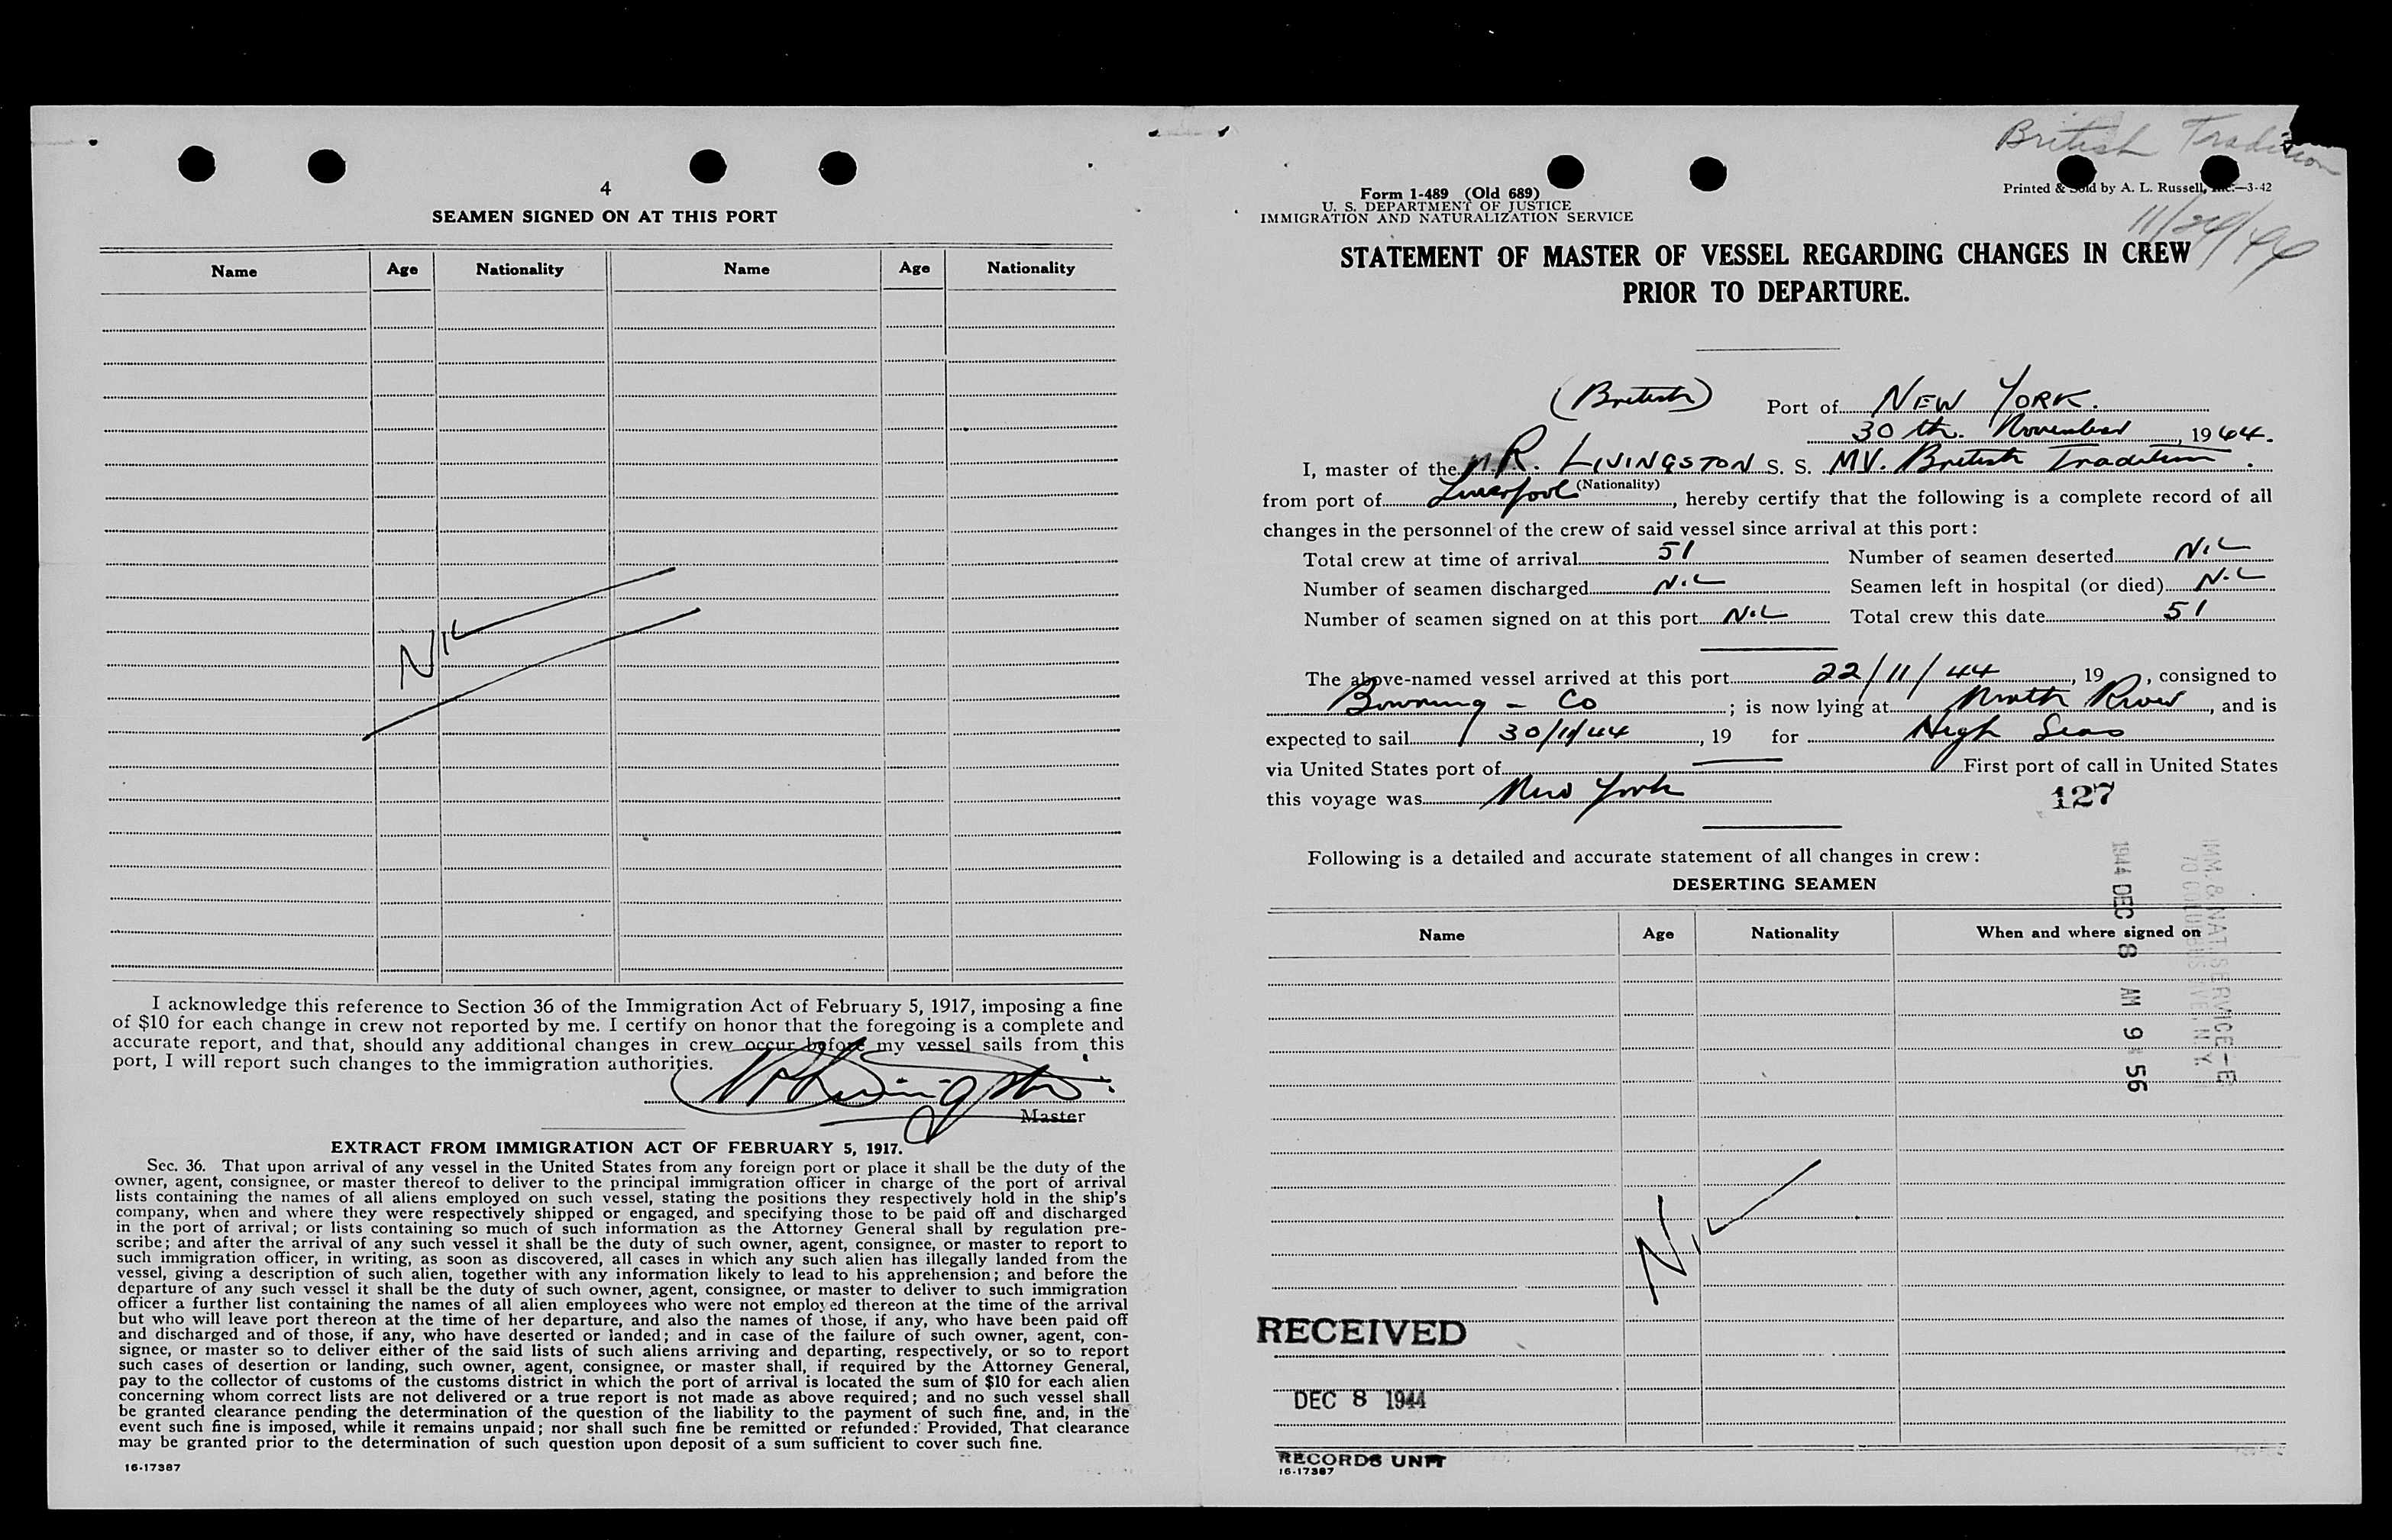 4
SEAMEN SIGNED ON AT THIS PORT
Name Age Nationality Name Age Nationality
NIL
I acknowledge this reference to Section 36 of the Immigration Act of February 5, 1917, imposing a fine
of $10 for each change in crew not reported by me. I certify on honor that the foregoing is a complete and
accurate report, and that, should any additional changes in crew occur before my vessel sails from this
port, I will report such changes to the immigration authorities.
Master
EXTRACT FROM IMMIGRATION ACT OF FEBRUARY 5, 1917.
Sec. 36. That upon arrival of any vessel in the United States from any foreign port or place it shall be the duty of the
owner, agent, consignee, or master thereof to deliver to the principal immigration officer in charge of the port of arrival
lists containing the names of all aliens employed on such vessel, stating the positions they respectively hold in the ship's
company, when and where they were respectively shipped or engaged, and specifying those to be paid off and discharged
in the port of arrival; or lists containing so much of such information as the Attorney General shall by regulation pre-
scribe; and after the arrival of any such vessel it shall be the duty of such owner, agent, consignee, or master to report to
such immigration officer, in writing, as soon as discovered, all cases in which any such alien has illegally landed from the
vessel, giving a description of such alien, together with any information likely to lead to his apprehension; and before the
departure of any such vessel it shall be the duty of such owner, agent, consignee, or master to deliver to such immigration
officer a further list containing the names of all alien employees who were not employed thereon at the time of the arrival
but who will leave port thereon at the time of her departure, and also the names of those, if any, who have been paid off
and discharged and of those, if any, who have deserted or landed; and in case of the failure of such owner, agent, con-
signee, or master so to deliver either of the said lists of such aliens arriving and departing, respectively, or so to report
such cases of desertion or landing, such owner, agent, consignee, or master shall, if required by the Attorney General,
pay to the collector of customs of the customs district in which the port of arrival is located the sum of $10 for each alien
concerning whom correct lists are not delivered or a true report is not made as above required; and no such vessel shall
be granted clearance pending the determination of the question of the liability to the payment of such fine, and, in the
event such fine is imposed, while it remains unpaid; nor shall such fine be remitted or refunded: Provided, That clearance
may be granted prior to the determination of such question upon deposit of a sum sufficient to cover such fine.
16-17387
British Tradition
Form 1-489 (Old 689)
Printed & Sold by A. L. Russell, Inc.—3-42
U. S. DEPARTMENT OF JUSTICE
IMMIGRATION AND NATURALIZATION SERVICE
11/29/44
STATEMENT OF MASTER OF VESSEL REGARDING CHANGES IN CREW
PRIOR TO DEPARTURE.
(British) Port of NEW YORK.
30 th. November, 1944.
I, master of the R. LIVINGSTON S. S. MV. British Tradition.
(Nationality)
from port of Liverpool, hereby certify that the following is a complete record of all
changes in the personnel of the crew of said vessel since arrival at this port:
Total crew at time of arrival 51 Number of seamen deserted NIL
Number of seamen discharged NIL Seamen left in hospital (or died) NIL
Number of seamen signed on at this port NIL Total crew this date 51
The above-named vessel arrived at this port 22/11/44, 19 , consigned to
Bowring - Co; is now lying at North River, and is
expected to sail 30/11/44, 19 for High Seas
via United States port of First port of call in United States
this voyage was New York
127
Following is a detailed and accurate statement of all changes in crew:
DESERTING SEAMEN
Name Age Nationality When and where signed on
NIL
1944 DEC 8 AM 9 56
IMM. & NAT. SERVICE—E
70 COLUMBUS AVE. N.Y.
RECEIVED
DEC 8 1944
RECORDS UNIT
16-17387